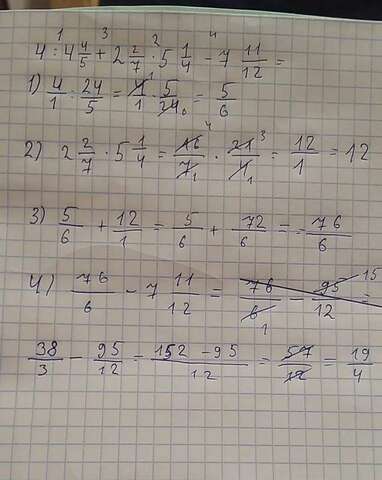 1 3 2 4
4 : 4 4/5 + 2 2/7 · 5 1/4 - 7 11/12 =
1) 4/1 : 24/5 = 4/1 · 5/24 = 5/6
2) 2 2/7 · 5 1/4 = 16/7 · 21/4 = 12/1 = 12
3) 5/6 + 12/1 = 5/6 + 72/6 = 76/6
4) 76/6 - 7 11/12 = 76/6 - 95/12 =
38/3 - 95/12 = 152 - 95/12 = 57/12 = 19/4